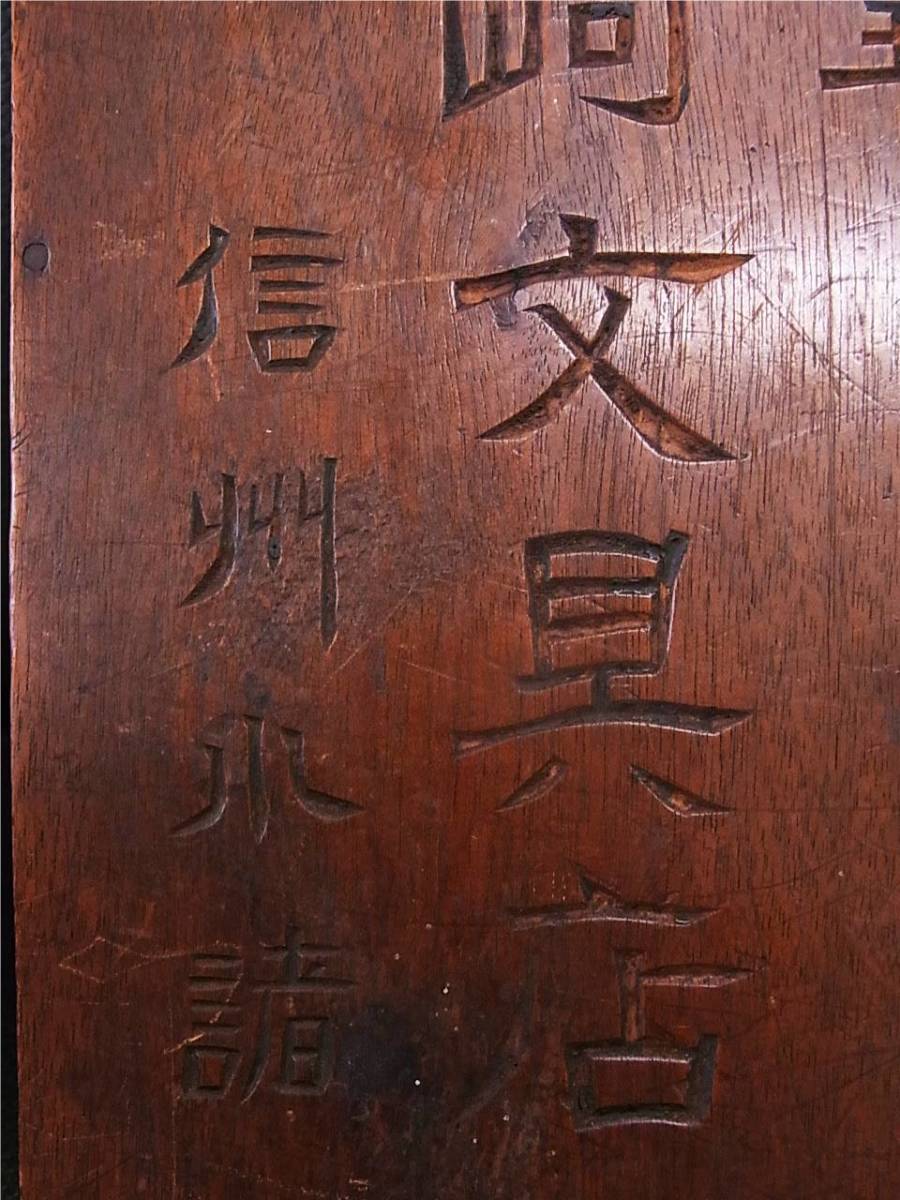 崎文具店
信州小諸